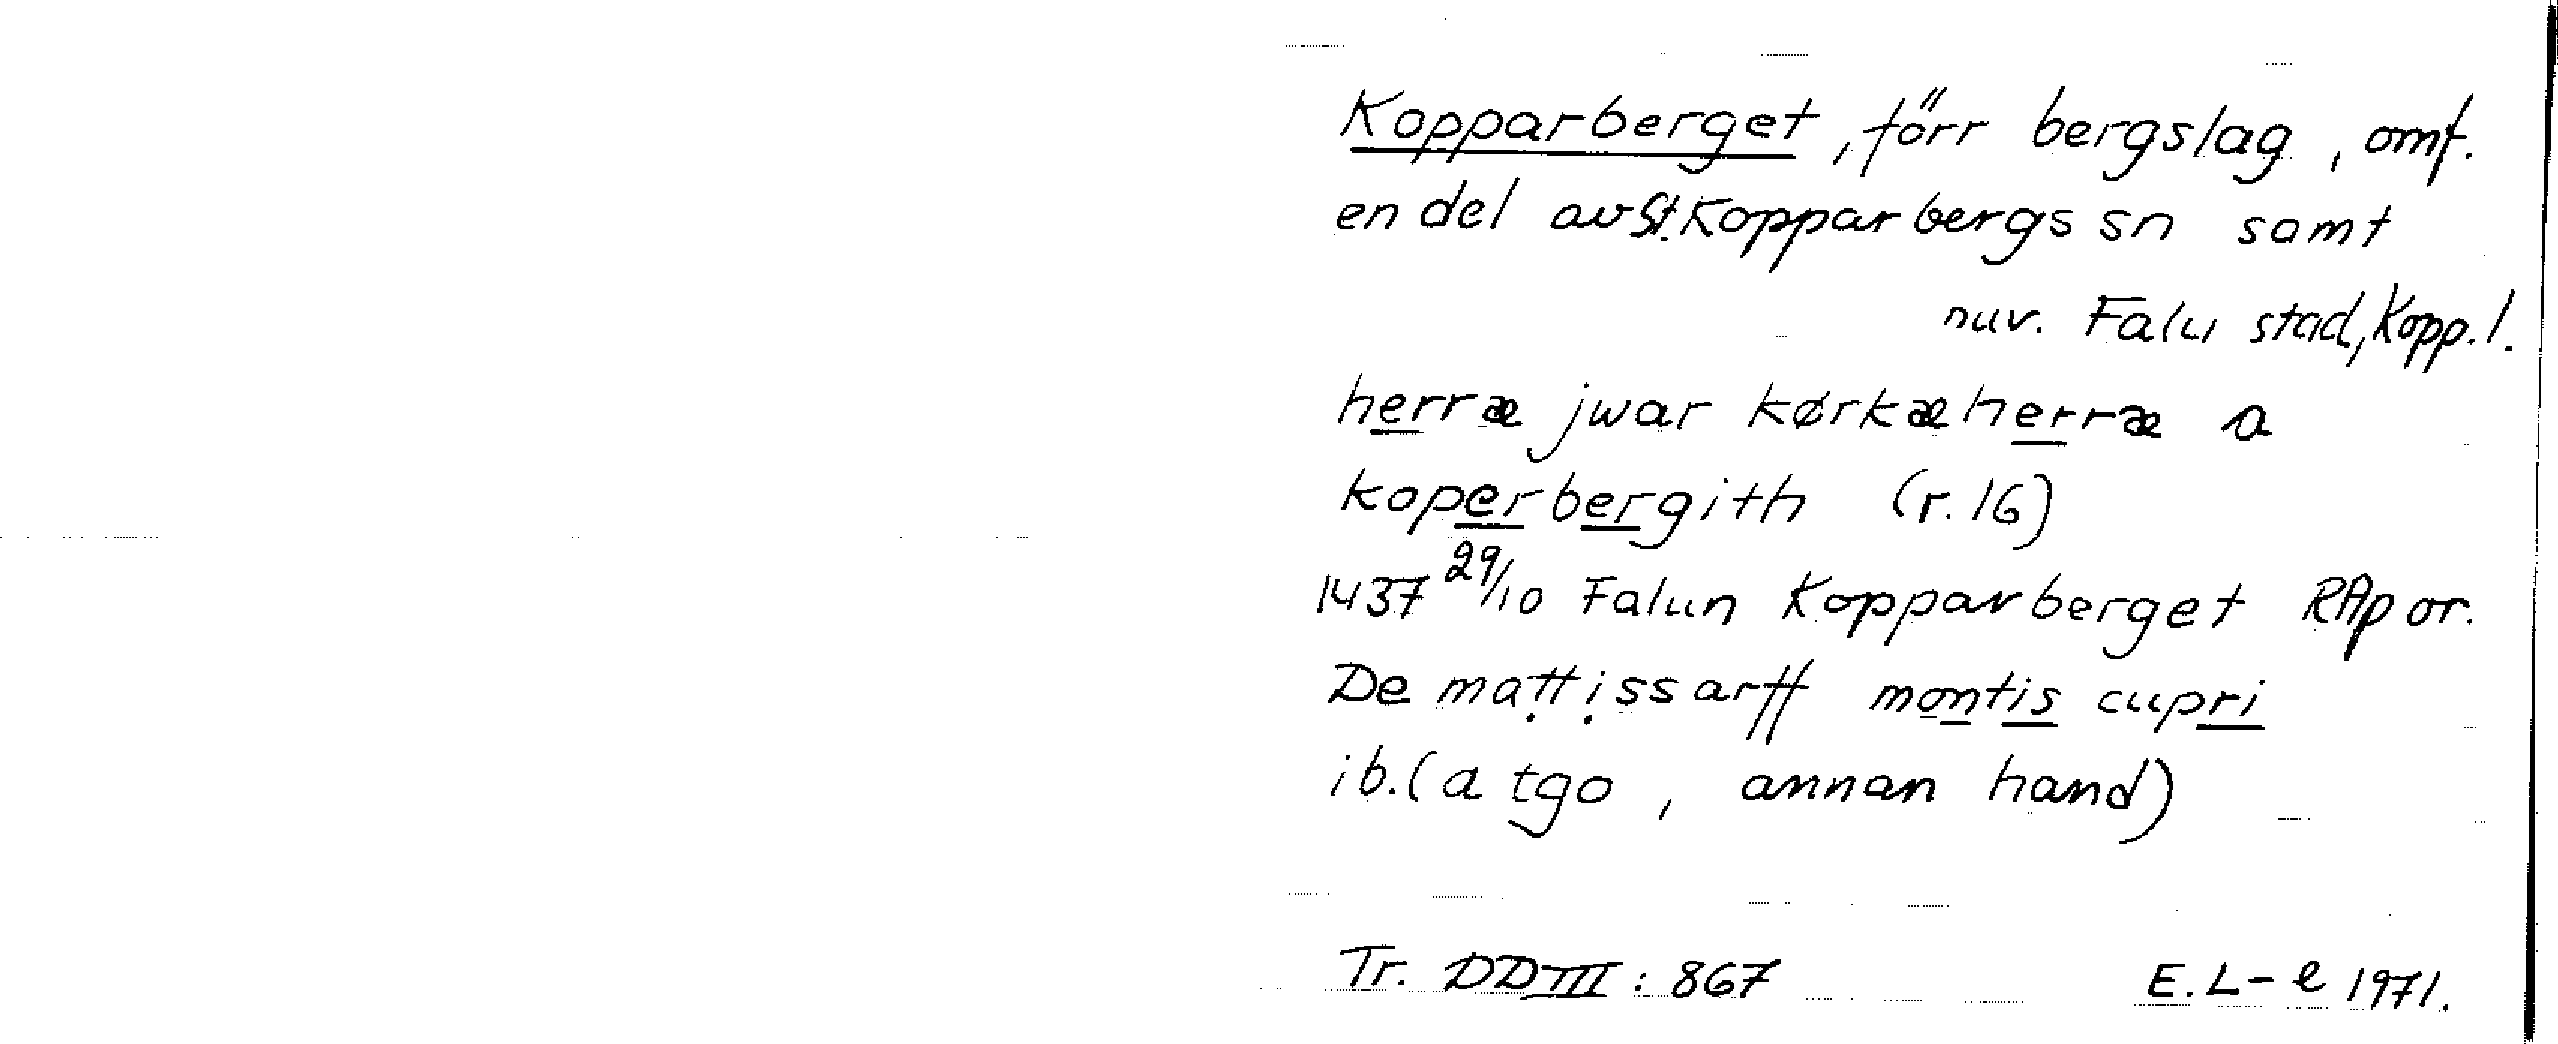 Kopparberget, förr bergslag, omf.
en del av St. Kopparbergs sn samt
nuv. Falu stad, Kopp. l.
herræ jwar kørkæherræ a
koperbergith (r. 16)
1437 29/10 Falun Kopparberget RAp or.
De mattissarff montis cupri
ib. (a tgo, annan hand)
Tr. DD III: 867 E. L-e 1971.